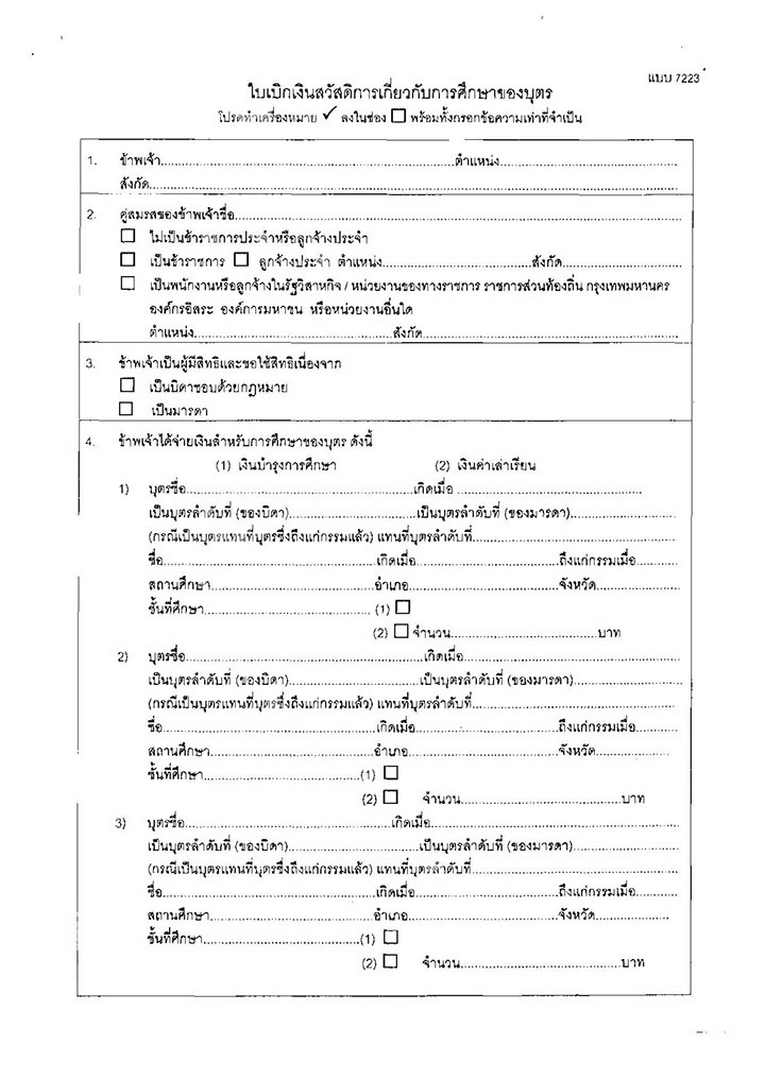 แบบ 7223
ใบเบิกเงินสวัสดิการเกี่ยวกับการศึกษาของบุตร
โปรดทำเครื่องหมาย ✓ ลงในช่อง ☐ พร้อมทั้งกรอกข้อความเท่าที่จำเป็น
1. ข้าพเจ้า..........ตำแหน่ง..........
สังกัด..........
2. คู่สมรสของข้าพเจ้าชื่อ..........
☐ ไม่เป็นข้าราชการประจำหรือลูกจ้างประจำ
☐ เป็นข้าราชการ ☐ ลูกจ้างประจำ ตำแหน่ง..........สังกัด..........
☐ เป็นพนักงานหรือลูกจ้างในรัฐวิสาหกิจ / หน่วยงานของทางราชการ ราชการส่วนท้องถิ่น กรุงเทพมหานคร
องค์กรอิสระ องค์การมหาชน หรือหน่วยงานอื่นใด
ตำแหน่ง..........สังกัด..........
3. ข้าพเจ้าเป็นผู้มีสิทธิและขอใช้สิทธิเนื่องจาก
☐ เป็นบิดาชอบด้วยกฎหมาย
☐ เป็นมารดา
4. ข้าพเจ้าได้จ่ายเงินสำหรับการศึกษาของบุตร ดังนี้
(1) เงินบำรุงการศึกษา (2) เงินค่าเล่าเรียน
1) บุตรชื่อ..........เกิดเมื่อ..........
เป็นบุตรลำดับที่ (ของบิดา)..........เป็นบุตรลำดับที่ (ของมารดา)..........
(กรณีเป็นบุตรแทนที่บุตรซึ่งถึงแก่กรรมแล้ว) แทนที่บุตรลำดับที่..........
ชื่อ..........เกิดเมื่อ..........ถึงแก่กรรมเมื่อ..........
สถานศึกษา..........อำเภอ..........จังหวัด..........
ชั้นที่ศึกษา.......... (1) ☐
(2) ☐ จำนวน..........บาท
2) บุตรชื่อ..........เกิดเมื่อ..........
เป็นบุตรลำดับที่ (ของบิดา)..........เป็นบุตรลำดับที่ (ของมารดา)..........
(กรณีเป็นบุตรแทนที่บุตรซึ่งถึงแก่กรรมแล้ว) แทนที่บุตรลำดับที่..........
ชื่อ..........เกิดเมื่อ..........ถึงแก่กรรมเมื่อ..........
สถานศึกษา..........อำเภอ..........จังหวัด..........
ชั้นที่ศึกษา..........(1) ☐
(2) ☐ จำนวน..........บาท
3) บุตรชื่อ..........เกิดเมื่อ..........
เป็นบุตรลำดับที่ (ของบิดา)..........เป็นบุตรลำดับที่ (ของมารดา)..........
(กรณีเป็นบุตรแทนที่บุตรซึ่งถึงแก่กรรมแล้ว) แทนที่บุตรลำดับที่..........
ชื่อ..........เกิดเมื่อ..........ถึงแก่กรรมเมื่อ..........
สถานศึกษา..........อำเภอ..........จังหวัด..........
ชั้นที่ศึกษา..........(1) ☐
(2) ☐ จำนวน..........บาท